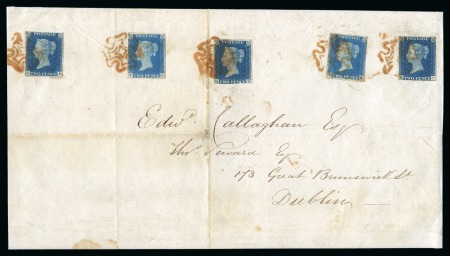 POSTAGE POSTAGE POSTAGE POSTAGE POSTAGE
TWO PENCE TWO PENCE TWO PENCE TWO PENCE TWO PENCE
Edwd. Callaghan Esq
Thos. Seward Esq
173 Great Brunswick St.
Dublin